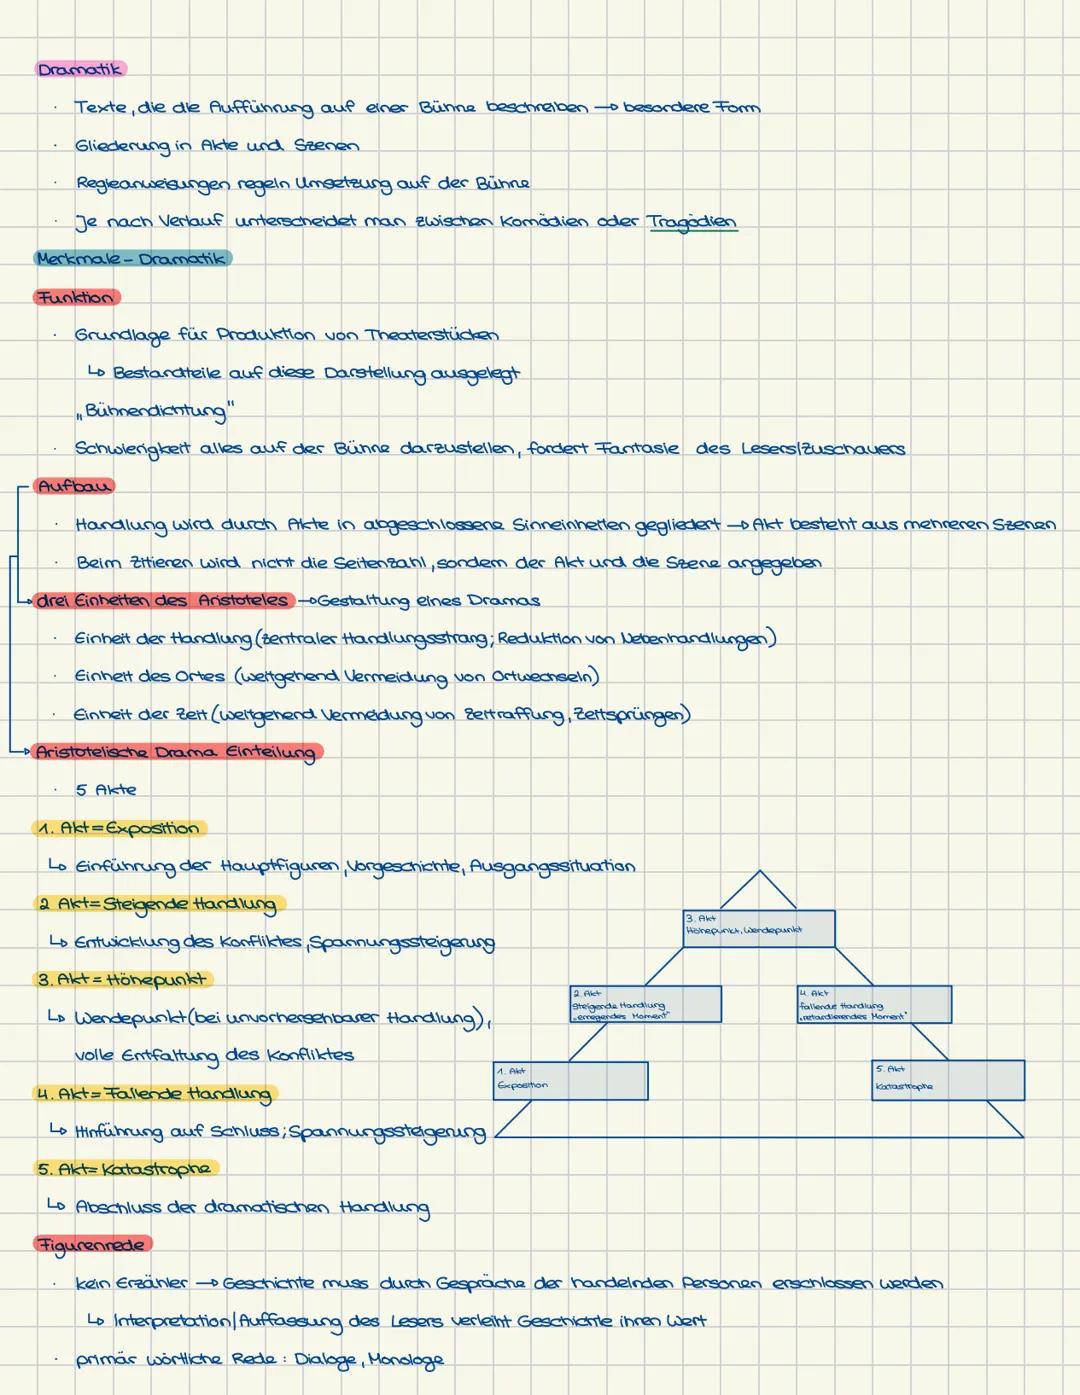 Dramatik
· Texte, die die Aufführung auf einer Bühne beschreiben → besondere Form
· Gliederung in Akte und Szenen
· Regieanweisungen regeln Umsetzung auf der Bühne
· Je nach Verlauf unterscheidet man zwischen Komödien oder Tragödien
Merkmale - Dramatik
Funktion
· Grundlage für Produktion von Theaterstücken
↳ Bestandteile auf diese Darstellung ausgelegt
„Bühnendichtung"
· Schwierigkeit alles auf der Bühne darzustellen, fordert Fantasie des Lesers/Zuschauers
Aufbau
· Handlung wird durch Akte in abgeschlossene Sinneinheiten gegliedert → Akt besteht aus mehreren Szenen
· Beim Zitieren wird nicht die Seitenzahl, sondern der Akt und die Szene angegeben
drei Einheiten des Aristoteles → Gestaltung eines Dramas
· Einheit der Handlung (zentraler Handlungsstrang; Reduktion von Nebenhandlungen)
· Einheit des Ortes (weitgehend Vermeidung von Ortwechseln)
· Einheit der Zeit (weitgehend Vermeidung von Zeitraffung, Zeitsprüngen)
Aristotelische Drama Einteilung
· 5 Akte
1. Akt = Exposition
↳ Einführung der Hauptfiguren, Vorgeschichte, Ausgangssituation
2 Akt = Steigende Handlung
↳ Entwicklung des Konfliktes, Spannungssteigerung
3. Akt = Höhepunkt
↳ Wendepunkt (bei unvorhersehbarer Handlung),
volle Entfaltung des Konfliktes
4. Akt = Fallende Handlung
↳ Hinführung auf Schluss; Spannungssteigerung
5. Akt = Katastrophe
↳ Abschluss der dramatischen Handlung
3. Akt
Höhepunkt, Wendepunkt
2. Akt
Steigende Handlung
„erregendes Moment"
4. Akt
fallende Handlung
„retardierendes Moment"
1. Akt
Exposition
5. Akt
Katastrophe
Figurenrede
· kein Erzähler → Geschichte muss durch Gespräche der handelnden Personen erschlossen werden
↳ Interpretation/Auffassung des Lesers verleiht Geschichte ihren Wert
· primär wörtliche Rede: Dialoge, Monologe